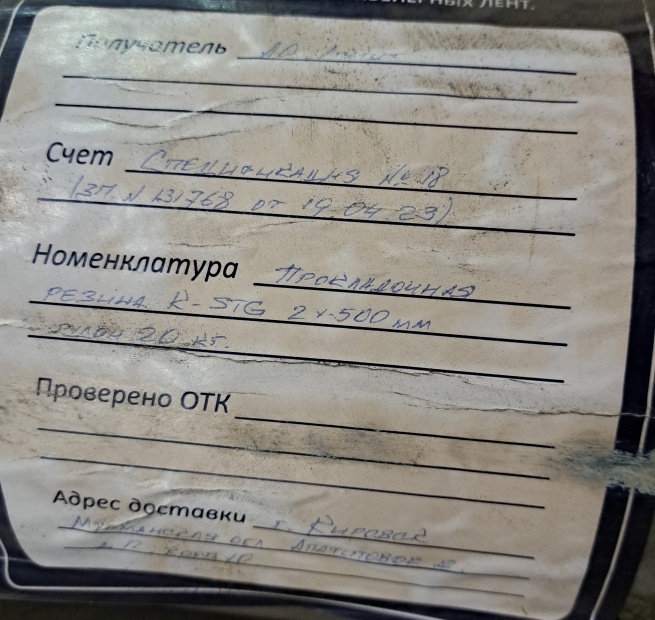 ЛЕНТ.
Получатель АО
Счет Спецификация № 18
(ЗП. N 131768 от 19.04.23)
Номенклатура Прокладочная
резина K-STG 2 х 500 мм
рулон 20 кг.
Проверено ОТК
Адрес доставки г. Кировск
Мурманская обл. Апатитовое